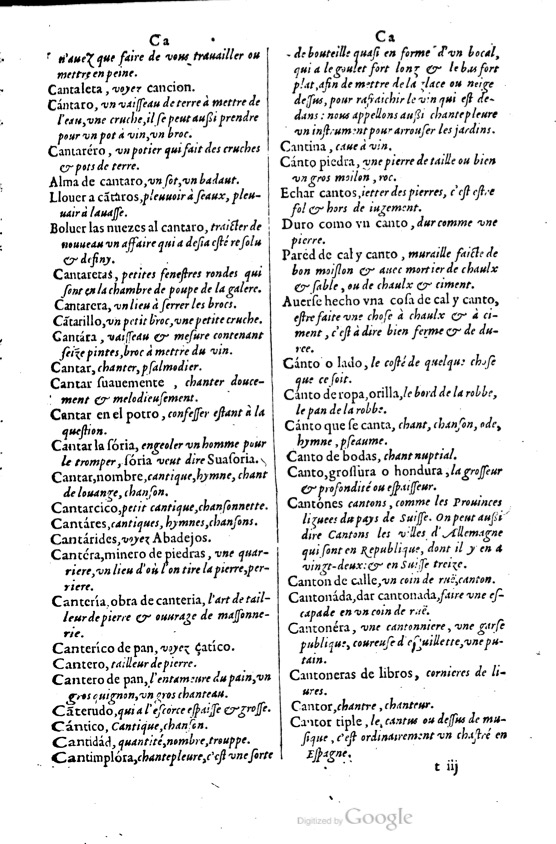 Ca
n'auez que faire de vous trauailler ou
mettre en peine.
Cantaleta, voyez cancion.
Cántaro, vn vaisseau de terre à mettre de
l'eau, vne cruche, il se peut aussi prendre
pour vn pot à vin, vn broc.
Cantaréro, vn potier qui fait des cruches
& pots de terre.
Alma de cantaro, vn sot, vn badaut.
Llouer a cãtaros, pleuuoir à seaux, pleu-
uair à lauasse.
Boluer las nuezes al cantaro, traicter de
nouueau vn affaire qui a desia esté resolu
& definy.
Cantaretas, petites fenestres rondes qui
sont en la chambre de poupe de la galere.
Cantarera, vn lieu à serrer les brocs.
Cãtarillo, vn petit broc, vne petite cruche.
Cantára, vaisseau & mesure contenant
seize pintes, broc à mettre du vin.
Cantar, chanter, psalmodier.
Cantar suauemente, chanter douce-
ment & melodieusement.
Cantar en el potro, confesser estant à la
question.
Cantar la sória, engeoler vn homme pour
le tromper, sória veut dire Suasoria.
Cantar, nombre, cantique, hymne, chant
de louange, chanson.
Cantarcico, petit cantique, chansonnette.
Cantáres, cantiques, hymnes, chansons.
Cantárides, voyez Abadejos.
Cantéra, minero de piedras, vne quar-
riere, vn lieu d'où l'on tire la pierre, per-
riere.
Cantería, obra de canteria, l'art de tail-
leur de pierre & ouurage de massonne-
rie.
Canterico de pan, voyez çatico.
Cantero, tailleur de pierre.
Cantero de pan, l'entameure du pain, vn
gros quignon, vn gros chanteau.
Cãterudo, qui a l'escorce espaisse & grosse.
Cántico, Cantique, chanson.
Cantidád, quantité, nombre, trouppe.
Cantimplóra, chantepleure, c'est vne sorte
Ca
de bouteille quasi en forme d'vn bocal,
qui a le goulet fort long & le bas fort
plat, afin de mettre de la glace ou neige
dessus, pour rafraichir le vin qui est de-
dans: nous appellons aussi chantepleure
vn instrument pour arrouser les jardins.
Cantina, caue à vin.
Cánto piedra, vne pierre de taille ou bien
vn gros moilon, roc.
Echar cantos, ietter des pierres, c'est estre
fol & hors de iugement.
Duro como vn canto, dur comme vne
pierre.
Paréd de cal y canto, muraille faicte de
bon moislon & auec mortier de chaulx
& sable, ou de chaulx & ciment.
Auerse hecho vna cosa de cal y canto,
estre faite vne chose à chaulx & à ci-
ment, c'est à dire bien ferme & de du-
ree.
Cánto o lado, le costé de quelque chose
que ce soit.
Cánto de ropa, orilla, le bord de la robbe,
le pan de la robbe.
Cánto que se canta, chant, chanson, ode,
hymne, pseaume.
Canto de bodas, chant nuptial.
Canto, grossura o hondura, la grosseur
& profondité ou espaisseur.
Cantónes cantons, comme les Prouinces
liguees du pays de Suisse. On peut aussi
dire Cantons les villes d'Allemagne
qui sont en Republique, dont il y en a
vingt-deux: & en Suisse treize.
Canton de calle, vn coin de ruë, canton.
Cantonáda, dar cantonada, faire vne es-
capade en vn coin de ruë.
Cantonéra, vne cantonniere, vne garse
publique, coureuse d'esguillette, vne pu-
tain.
Cantoneras de libros, cornieres de li-
ures.
Cantor, chantre, chanteur.
Cantor tiple, le cantus ou dessus de mu-
sique, c'est ordinairement vn chastré en
Espagne.
t iij
Digitized by Google